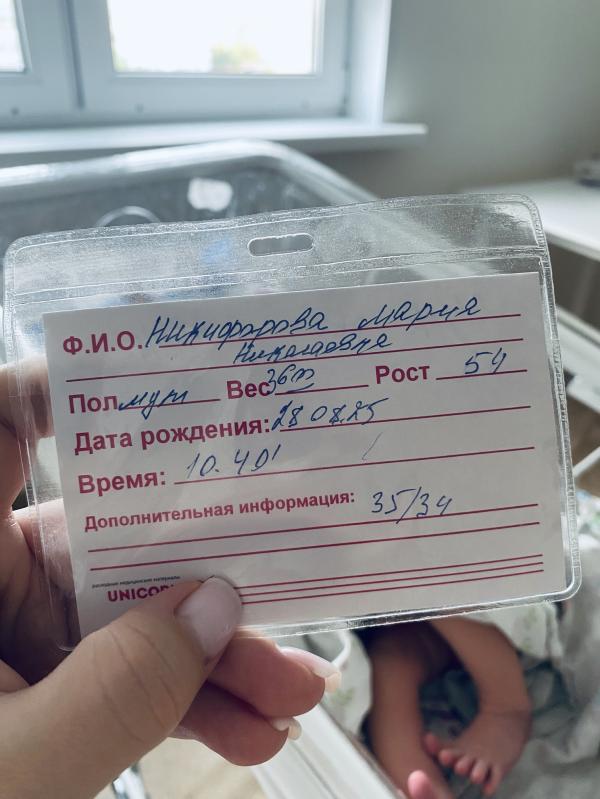 Ф.И.О. Никифорова Мария
Николаевна
Пол муж Вес Рост 54
Дата рождения: 28.08.25
Время: 10.40'
Дополнительная информация: 35/34
расходные медицинские материалы